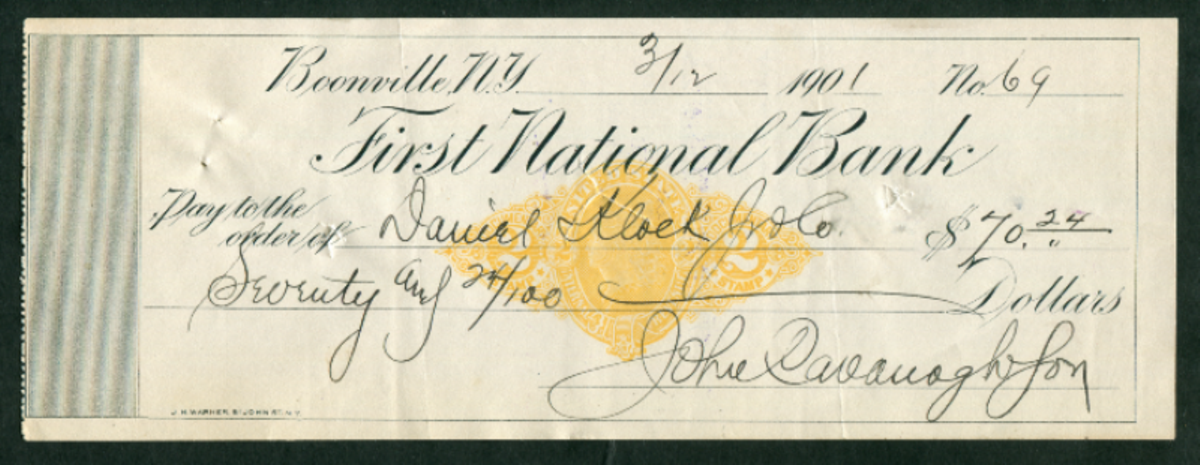 Boonville, N.Y. 3/12 1901 No. 69
First National Bank
Pay to the
order of Daniel Klock Jr & Co. $70.24
Seventy and 24/100 Dollars
2 2
STAMP
John Cavanagh & Son
J. H. WARNER, 91 JOHN ST. N.Y.